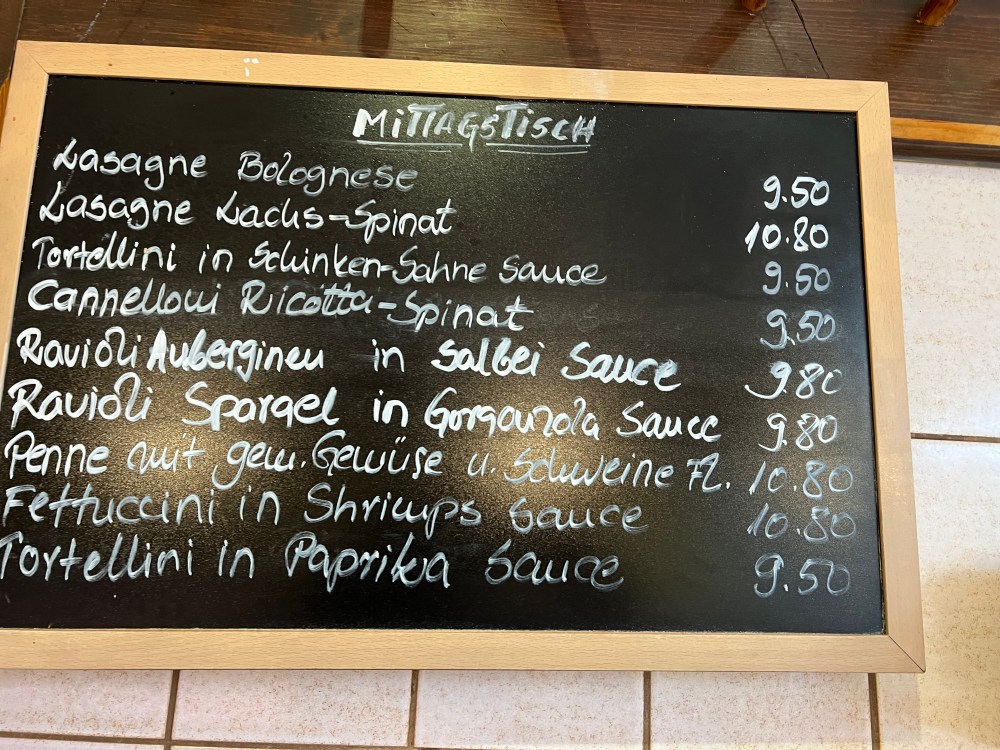 MITTAGSTISCH
Lasagne Bolognese 9.50
Lasagne Lachs-Spinat 10.80
Tortellini in Schinken-Sahne Sauce 9.50
Cannelloni Ricotta-Spinat 9.50
Ravioli Auberginen in Salbei Sauce 9.80
Ravioli Spargel in Gorgonzola Sauce 9.80
Penne mit gem. Gemüse u. Schweine Fl. 10.80
Fettuccini in Shrimps Sauce 10.80
Tortellini in Paprika Sauce 9.50